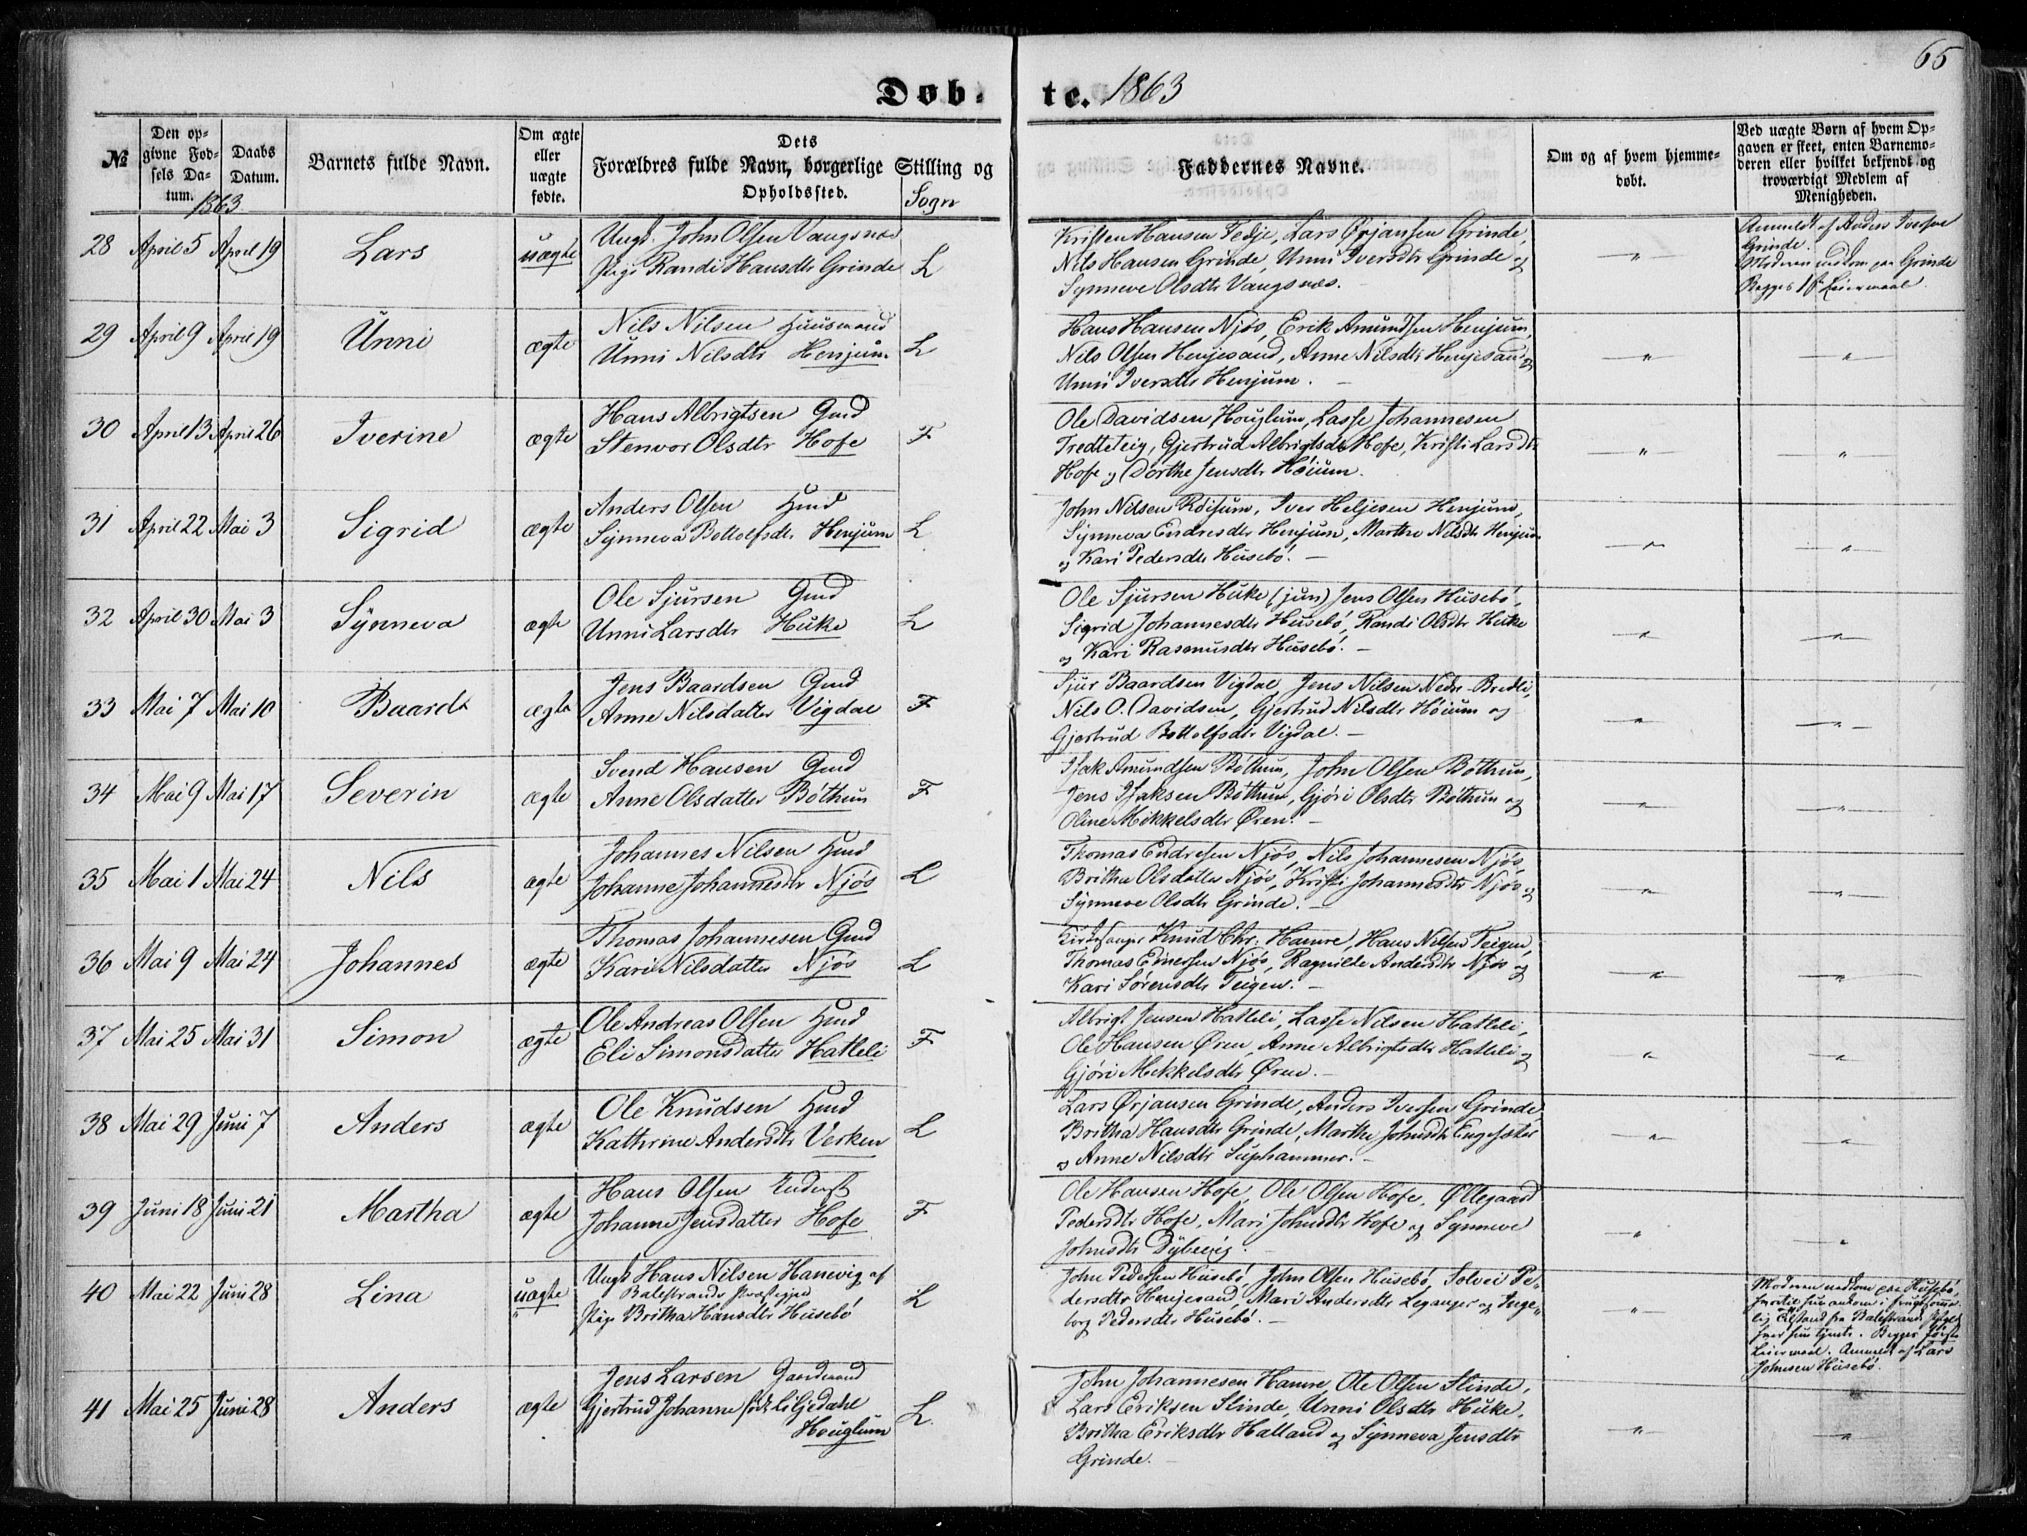 65
Døb- te. 1863
№
Den op-
givne Fød-
sels Da-
tum.
Daabs
Datum.
Barnets fulde Navn.
Om ægte
eller
uægte
fødte.
Dets
Forældres fulde Navn, borgerlige Stilling og
Opholdssted.
Sogn
Faddernes Navne.
Om og af hvem hjemme-
døbt.
Ved uægte Børn af hvem Op-
gaven er skeet, enten Barnemo-
deren eller hvilket bekjendt og
troværdigt Medlem af
Menigheden.
1863.
28 April 5 April 19 Lars uægte
Ungk. John Olsen Vangsnæs
Pige Randi Hansdtr Grinde L
Kristen Hansen Tedje, Lars Ørjansen Grinde,
Nils Hansen Grinde, Unni Iversdtr Grinde og
Synneve Olsdtr Vangsnæs.
"
Anmeldt af Anders Iversen
Grinde.
Moderen
paa Grinde
Begges 1st Leiermaal.
29 April 9 April 19 Unni ægte
Nils Nilsen Huusmand
Unni Nilsdtr Henjum L
Hans Hansen Njøs, Erik Amundsen Henjum,
Nils Olsen Henjesand, Anne Nilsdtr Henjesand og
Unni Iversdtr Henjum. —
" "
30 April 13 April 26 Iverine ægte
Hans Albrigtsen Gmd
Stenvor Olsdtr Hofe F
Ole Davidsen Houglum, Lasse Johannesen
Tredteteig, Gjertrud Albrigtsdtr Hofe, Kristi Larsdtr
Hofe og Dorthe Jensdtr Høium.
" "
31 April 22 Mai 3 Sigrid ægte
Anders Olsen Hmd
Synneva Bottolfsdtr Henjum L
John Nilsen Røisum, Iver Heljesen Henjum,
Synneva Endresdtr Henjum, Marthe Nilsdtr Henjum
og Kari Pedersdtr Husebø. —
" "
32 April 30 Mai 3 Synneva ægte
Ole Sjursen Gmd
Unni Larsdtr Huke L
Ole Sjursen Huke (jun) Jens Olsen Husebø,
Sigrid Johannesdtr Husebø, Randi Olsdtr Huke
og Kari Rasmusdtr Husebø. —
" "
33 Mai 7 Mai 10 Baardt ægte
Jens Baardsen Gmd
Anne Nilsdatter Vigdal F
Sjur Baardsen Vigdal, Jens Nilsen Nedre Bredli,
Nils O. Davidsen, Gjertrud Nilsdtr Høium og
Gjertrud Bottolfsdtr Vigdal. —
" "
34 Mai 9 Mai 17 Severin ægte
Svend Hansen Gmd
Anne Olsdatter Bøthun F
Isak Amundsen Bøthun, John Olsen Bøthun,
Jens Isaksen Bøthun, Gjøri Olsdtr Bøthun og
Oline Mikkelsdtr Øren. —
" "
35 Mai 1 Mai 24 Nils ægte
Johannes Nilsen Hmd
Johanne Johannesdtr Njøs L
Thomas Endresen Njøs, Nils Johannesen Njøs,
Britha Olsdatter Njøs, Kristi Johannesdtr Njøs og
Synneve Olsdtr Grinde. —
" "
36 Mai 9 Mai 24 Johannes ægte
Thomas Johannesen Gmd
Kari Nilsdatter Njøs L
Kirkesanger Knud Chr. Hamre, Hans Nilsen Teigen,
Thomas Einersen Njøs, Ragnilde Andersdtr Njøs og
Kari Sørensdtr Teigen. —
" "
37 Mai 25 Mai 31 Simon ægte
Ole Andreas Olsen Hmd
Eli Simonsdatter Hatleli F
Albrigt Jensen Hatleli, Lasse Nilsen Hatleli,
Ole Hansen Øren, Anne Albrigtsdtr Hatleli og
Gjøri Mikkelsdtr Øren. —
" "
38 Mai 29 Juni 7 Anders ægte
Ole Knudsen Hmd
Kathrine Andersdtr Verken L
Lars Ørjansen Grinde, Anders Iversen Grinde
Britha Hansdtr Grinde, Marthe Johnsdtr Engesæter
og Anne Nilsdtr Suphammer. —
" "
39 Juni 18 Juni 21 Martha ægte
Hans Olsen Inderst
Johanne Jensdatter Hofe F
Ole Hansen Hofe, Ole Olsen Hofe, Øllegaard
Pedersdtr Hofe, Mari Johnsdtr Hofe og Synneve
Johnsdtr Dybevig. —
" "
40 Mai 22 Juni 28 Lina uægte
Ungk Hans Nilsen Hanevig af
Balestrands Præstegjed
Pige Britha Hansdtr Husebø L
John Pedersen Husebø, John Olsen Husebø, Solvei Pe-
dersdtr Henjesand, Mari Andersdtr Leganger og Inge-
borg Pedersdtr Husebø. —
"
Moderen
paa Husebø,
hun ankom i frugtsomme-
lig Tilstand fra Balestrand
hvor hun tjente. Begges første
Leiermaal. Anmeldt af Lars
Johnsen Husebø.
41 Mai 25 Juni 28 Anders ægte
Jens Larsen Gaardmand
Gjertrud Johanne født Liljedahl
Houglum L.
John Johannesen Hamre, Ole Olsen Slinde,
Lars Eriksen Slinde, Unni Olsdtr Huke,
Britha Eriksdtr Halland og Synneva Jensdtr
Grinde. —
" "